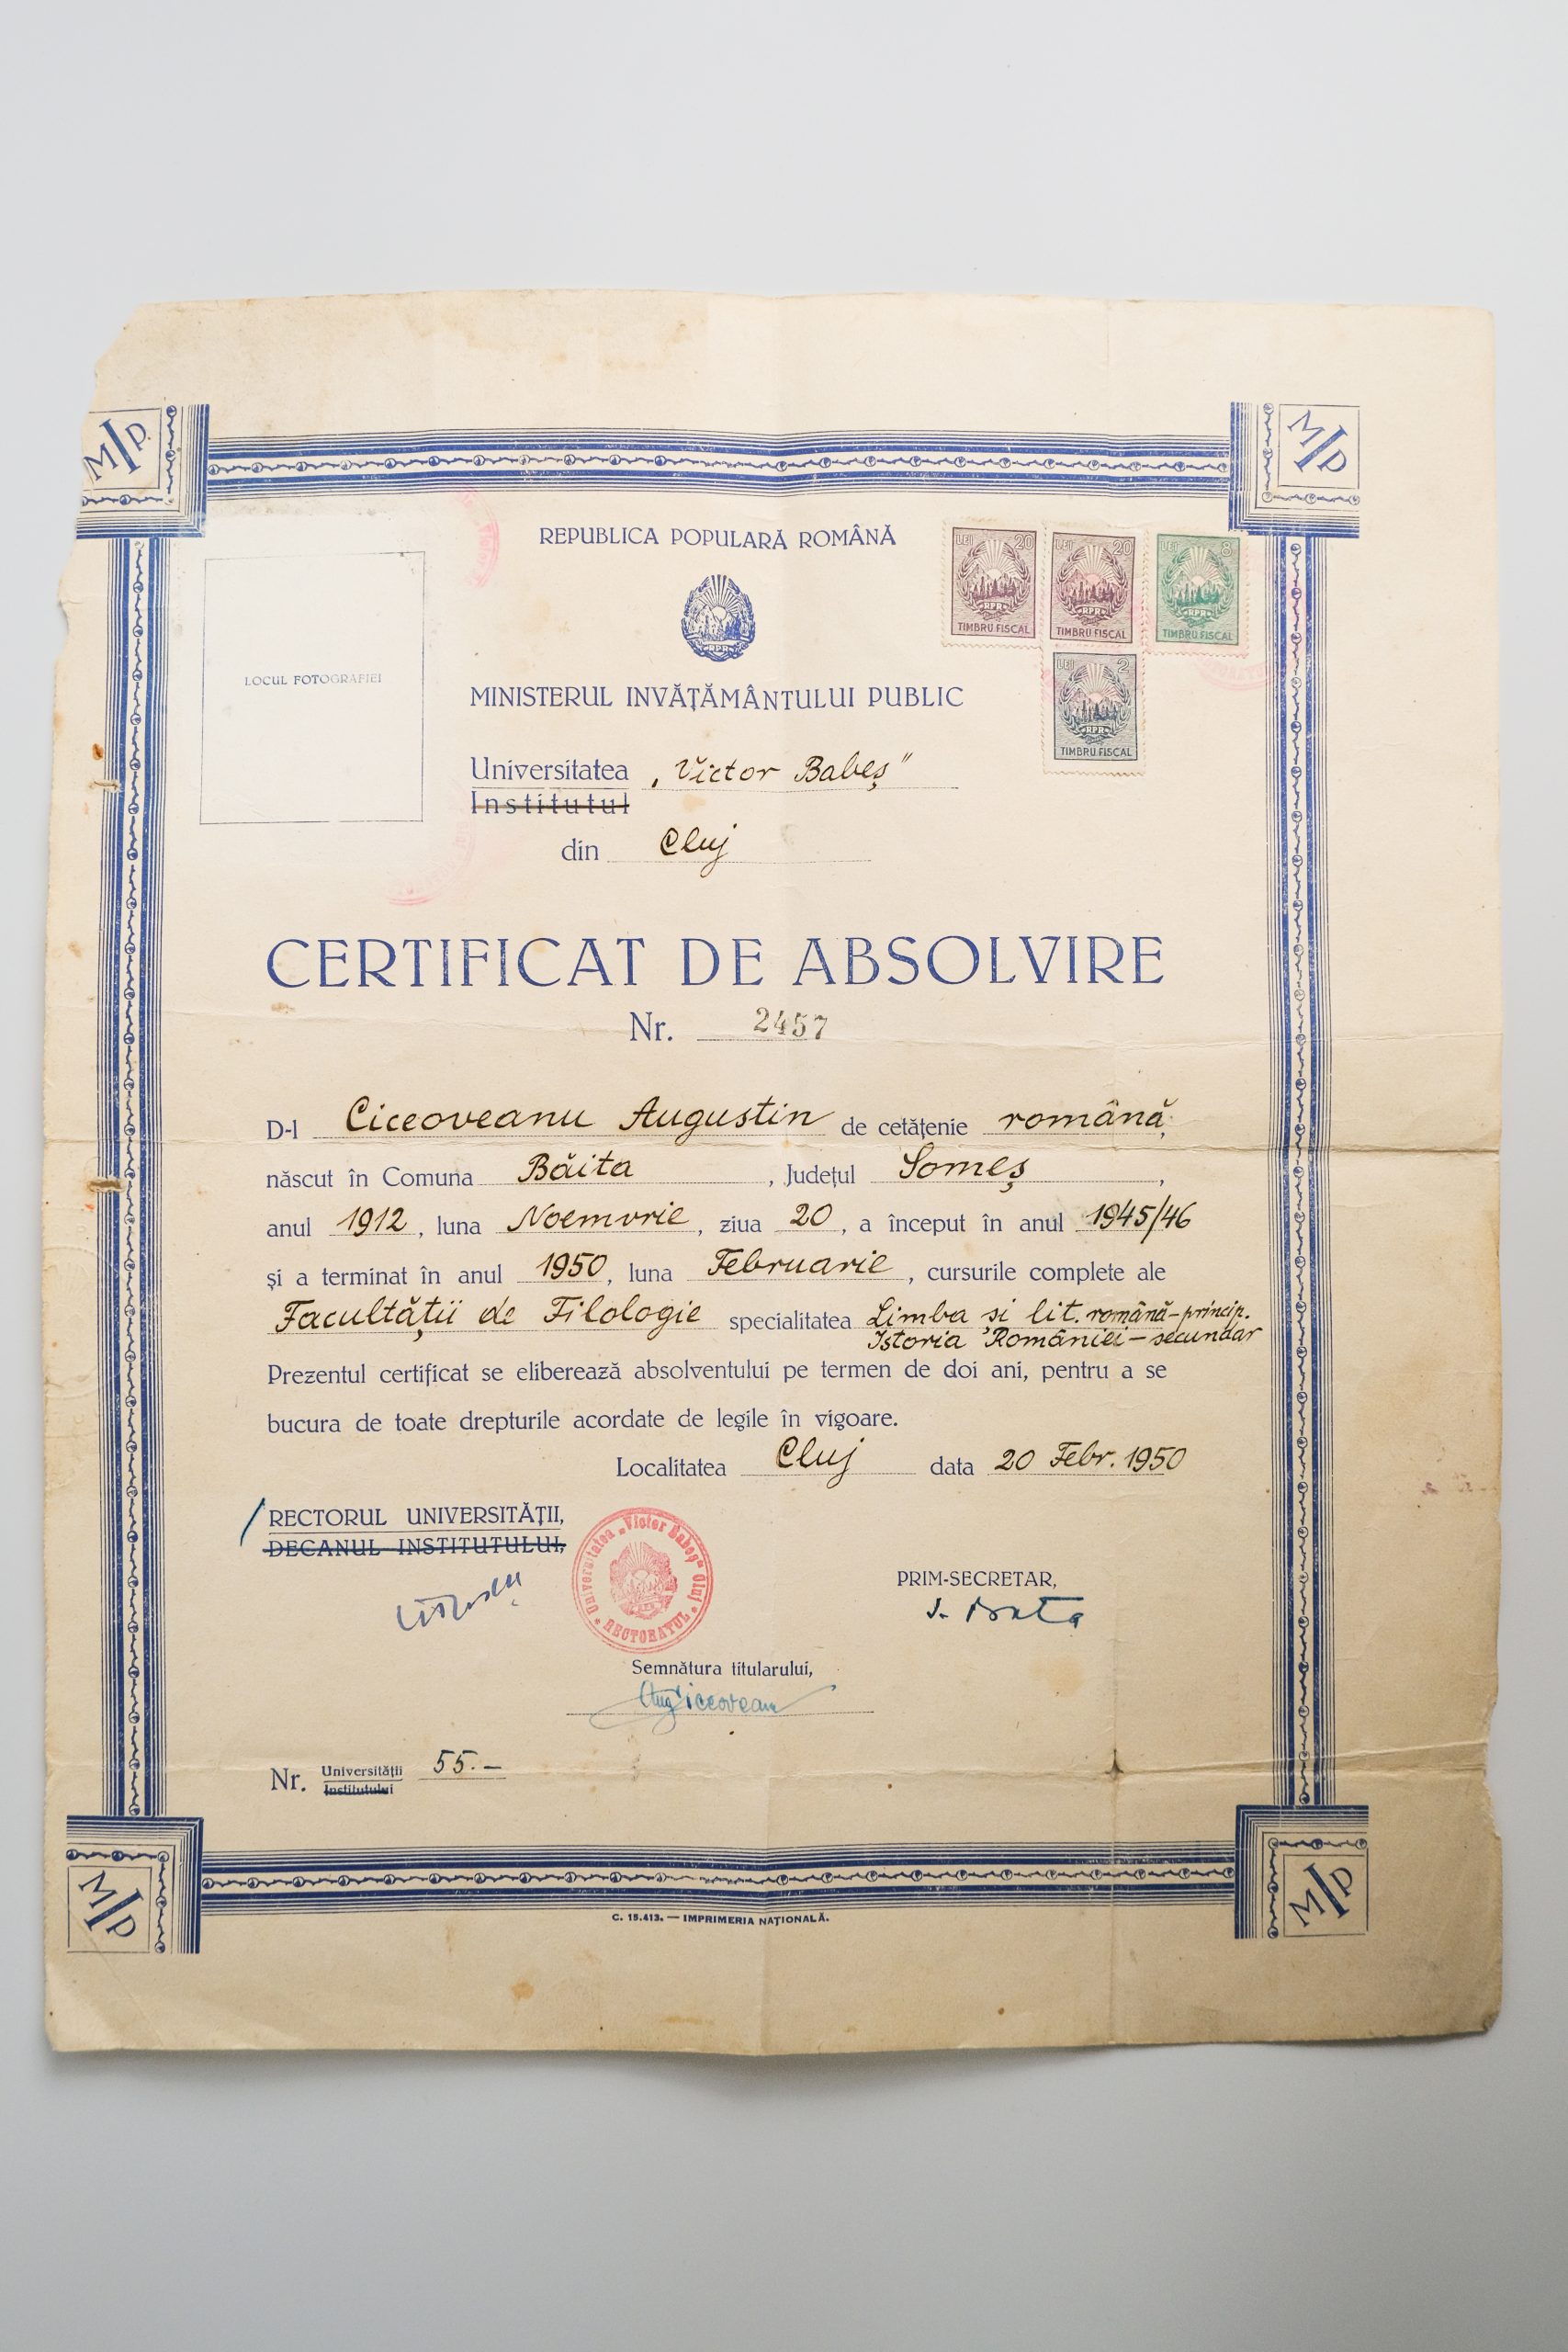 M I P.
M I P
REPUBLICA POPULARĂ ROMÂNĂ
LEI 20
TIMBRU FISCAL
LEI 20
RPR
TIMBRU FISCAL
LEI 8
RPR
TIMBRU FISCAL
LEI 2
RPR
TIMBRU FISCAL
RPR
LOCUL FOTOGRAFIEI
MINISTERUL INVĂȚĂMÂNTULUI PUBLIC
Universitatea „Victor Babeș”
Institutul
din Cluj
CERTIFICAT DE ABSOLVIRE
Nr. 2457
D-l Ciceoveanu Augustin de cetățenie română,
născut în Comuna Băita, Județul Someș,
anul 1912, luna Noemvrie, ziua 20, a început în anul 1945/46
și a terminat în anul 1950, luna Februarie, cursurile complete ale
Facultății de Filologie specialitatea Limba și lit. română-princip.
Istoria României - secundar
Prezentul certificat se eliberează absolventului pe termen de doi ani, pentru a se
bucura de toate drepturile acordate de legile în vigoare.
Localitatea Cluj data 20 Febr. 1950
RECTORUL UNIVERSITĂȚII,
DECANUL INSTITUTULUI,
Universitatea „Victor Babeș” Cluj
RECTORATUL
PRIM-SECRETAR,
Semnătura titularului,
Aug Ciceoveanu
Nr. Universității 55.-
Institutului
M I P
M I P
C. 15.413. — IMPRIMERIA NAȚIONALĂ.